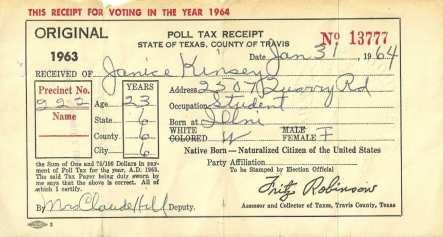 THIS RECEIPT FOR VOTING IN THE YEAR 1964
ORIGINAL
1963
POLL TAX RECEIPT
STATE OF TEXAS, COUNTY OF TRAVIS
No 13777
Date Jan 31, 1964
RECEIVED OF Janice Kinsey
Address 2507 Quarry Rd
Precinct No.
222
Name
YEARS
Age 23
State 6
County 6
City 6
Occupation Student
Born at
WHITE
COLORED W
MALE
FEMALE F
Native Born - Naturalized Citizen of the United States
Party Affiliation
To be Stamped by Election Official
the Sum of One and 75/100 Dollars in payment of Poll Tax for the year, A.D. 1963.
The said Tax Payer being duly sworn by
me says that the above is correct. All of
which I certify.
By Mrs Claude Hill Deputy.
Fritz Robinson
Assessor and Collector of Taxes, Travis County, Texas